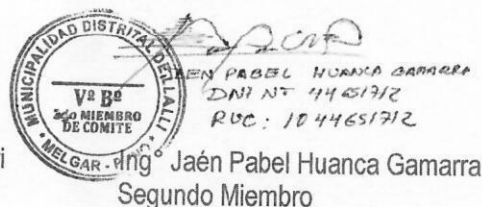 MUNICIPALIDAD DISTRITAL DE LLALLI
Vª Bª
2do MIEMBRO
DE COMITE
MELGAR - PUNO
JAEN PABEL HUANCA GAMARRA
DNI Nº 44651712
RUC: 1044651712
i
Ing Jaén Pabel Huanca Gamarra
Segundo Miembro